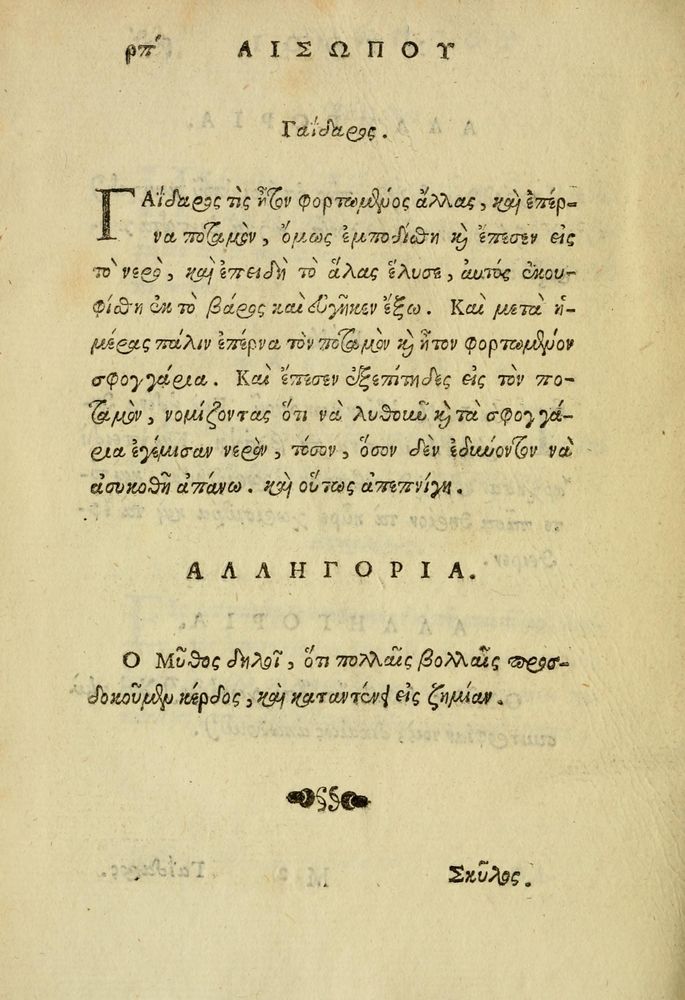 ρπʹ ΑΙΣΩΠΟΥ
Γαΐδαρος.
ΓΑΐδαρος τὶς ἦτον φορτωμῥύος ἄλλας, καὶ ἐπέρ-
να ποταμὸν, ὅμως ἐμποδίθη καὶ ἔπεσεν εἰς
τὸ νερὸ, καὶ ἐπειδὴ τὸ ἅλας ἔλυσε, ἀυτὸς ἐκου-
φίθη ἐκ τὸ βάρος καὶ ἐυγῆκεν ἔξω. Καὶ μετὰ ἡ-
μέρας πάλιν ἐπέρνα τὸν ποταμὸν καὶ ἦτον φορτωμένον
σφογγάρια. Καὶ ἔπεσεν ἐξεπίτηδες εἰς τὸν πο-
ταμὸν, νομίζοντας ὅτι νὰ λυθοιοῦ καὶ τὰ σφογγά-
ρια ἐγέμισαν νερὸν, τόσον, ὅσον δὲν ἐδυνόντον νὰ
ἀσυκοθῆ ἀπάνω. καὶ οὕτως ἀπεπνίγη.
ΑΛΛΗΓΟΡΙΑ.
Ο Μῦθος δηλοῖ, ὅτι πολλαῖς βολλαῖς προσ-
δοκοῦμεν κέρδος, καὶ καταντένει εἰς ζημίαν.
Σκῦλος.